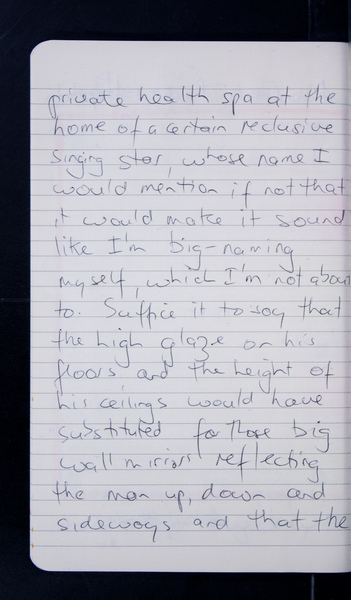 private health spa at the
home of a certain reclusive
singing star, whose name I
would mention if not that
it would make it sound
like I'm big-naming
myself, which I'm not about
to. Suffice it to say that
the high glaze on his
floors, and the height of
his ceilings would have
substituted for those big
wall mirrors reflecting
the man up, down and
sideways and that the